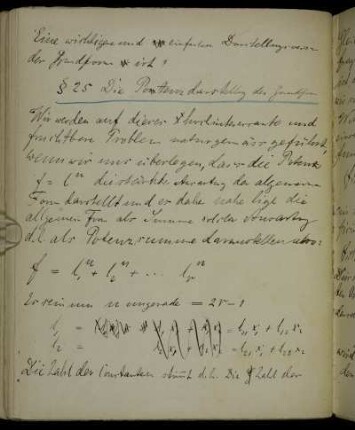 Eine wichtigere und einfachere Darstellungsweise
der Grundform ist?
§ 25 Die Potenzdarstellung der Grundform
Wir werden auf dieses und
fruchtbare Problem naturgemäss geführt,
wenn wir uns überlegen, dass die Potenz
f = l^n die Ausartung der allgemeinen
Form darstellt und es daher nahe liegt die
allgemeine Form als Summe solcher Ausartung
d.h. als Potenzsumme darzustellen also:
f = l₁^n + l₂^n + ... l_r^n
Es sei nun n ungerade = 2r-1
l₁ = l₁₁ x₁ + l₁₂ x₂
l₂ = l₂₁ x₁ + l₂₂ x₂
Die Zahl der Constanten stimmt d.h. Die Zahl der